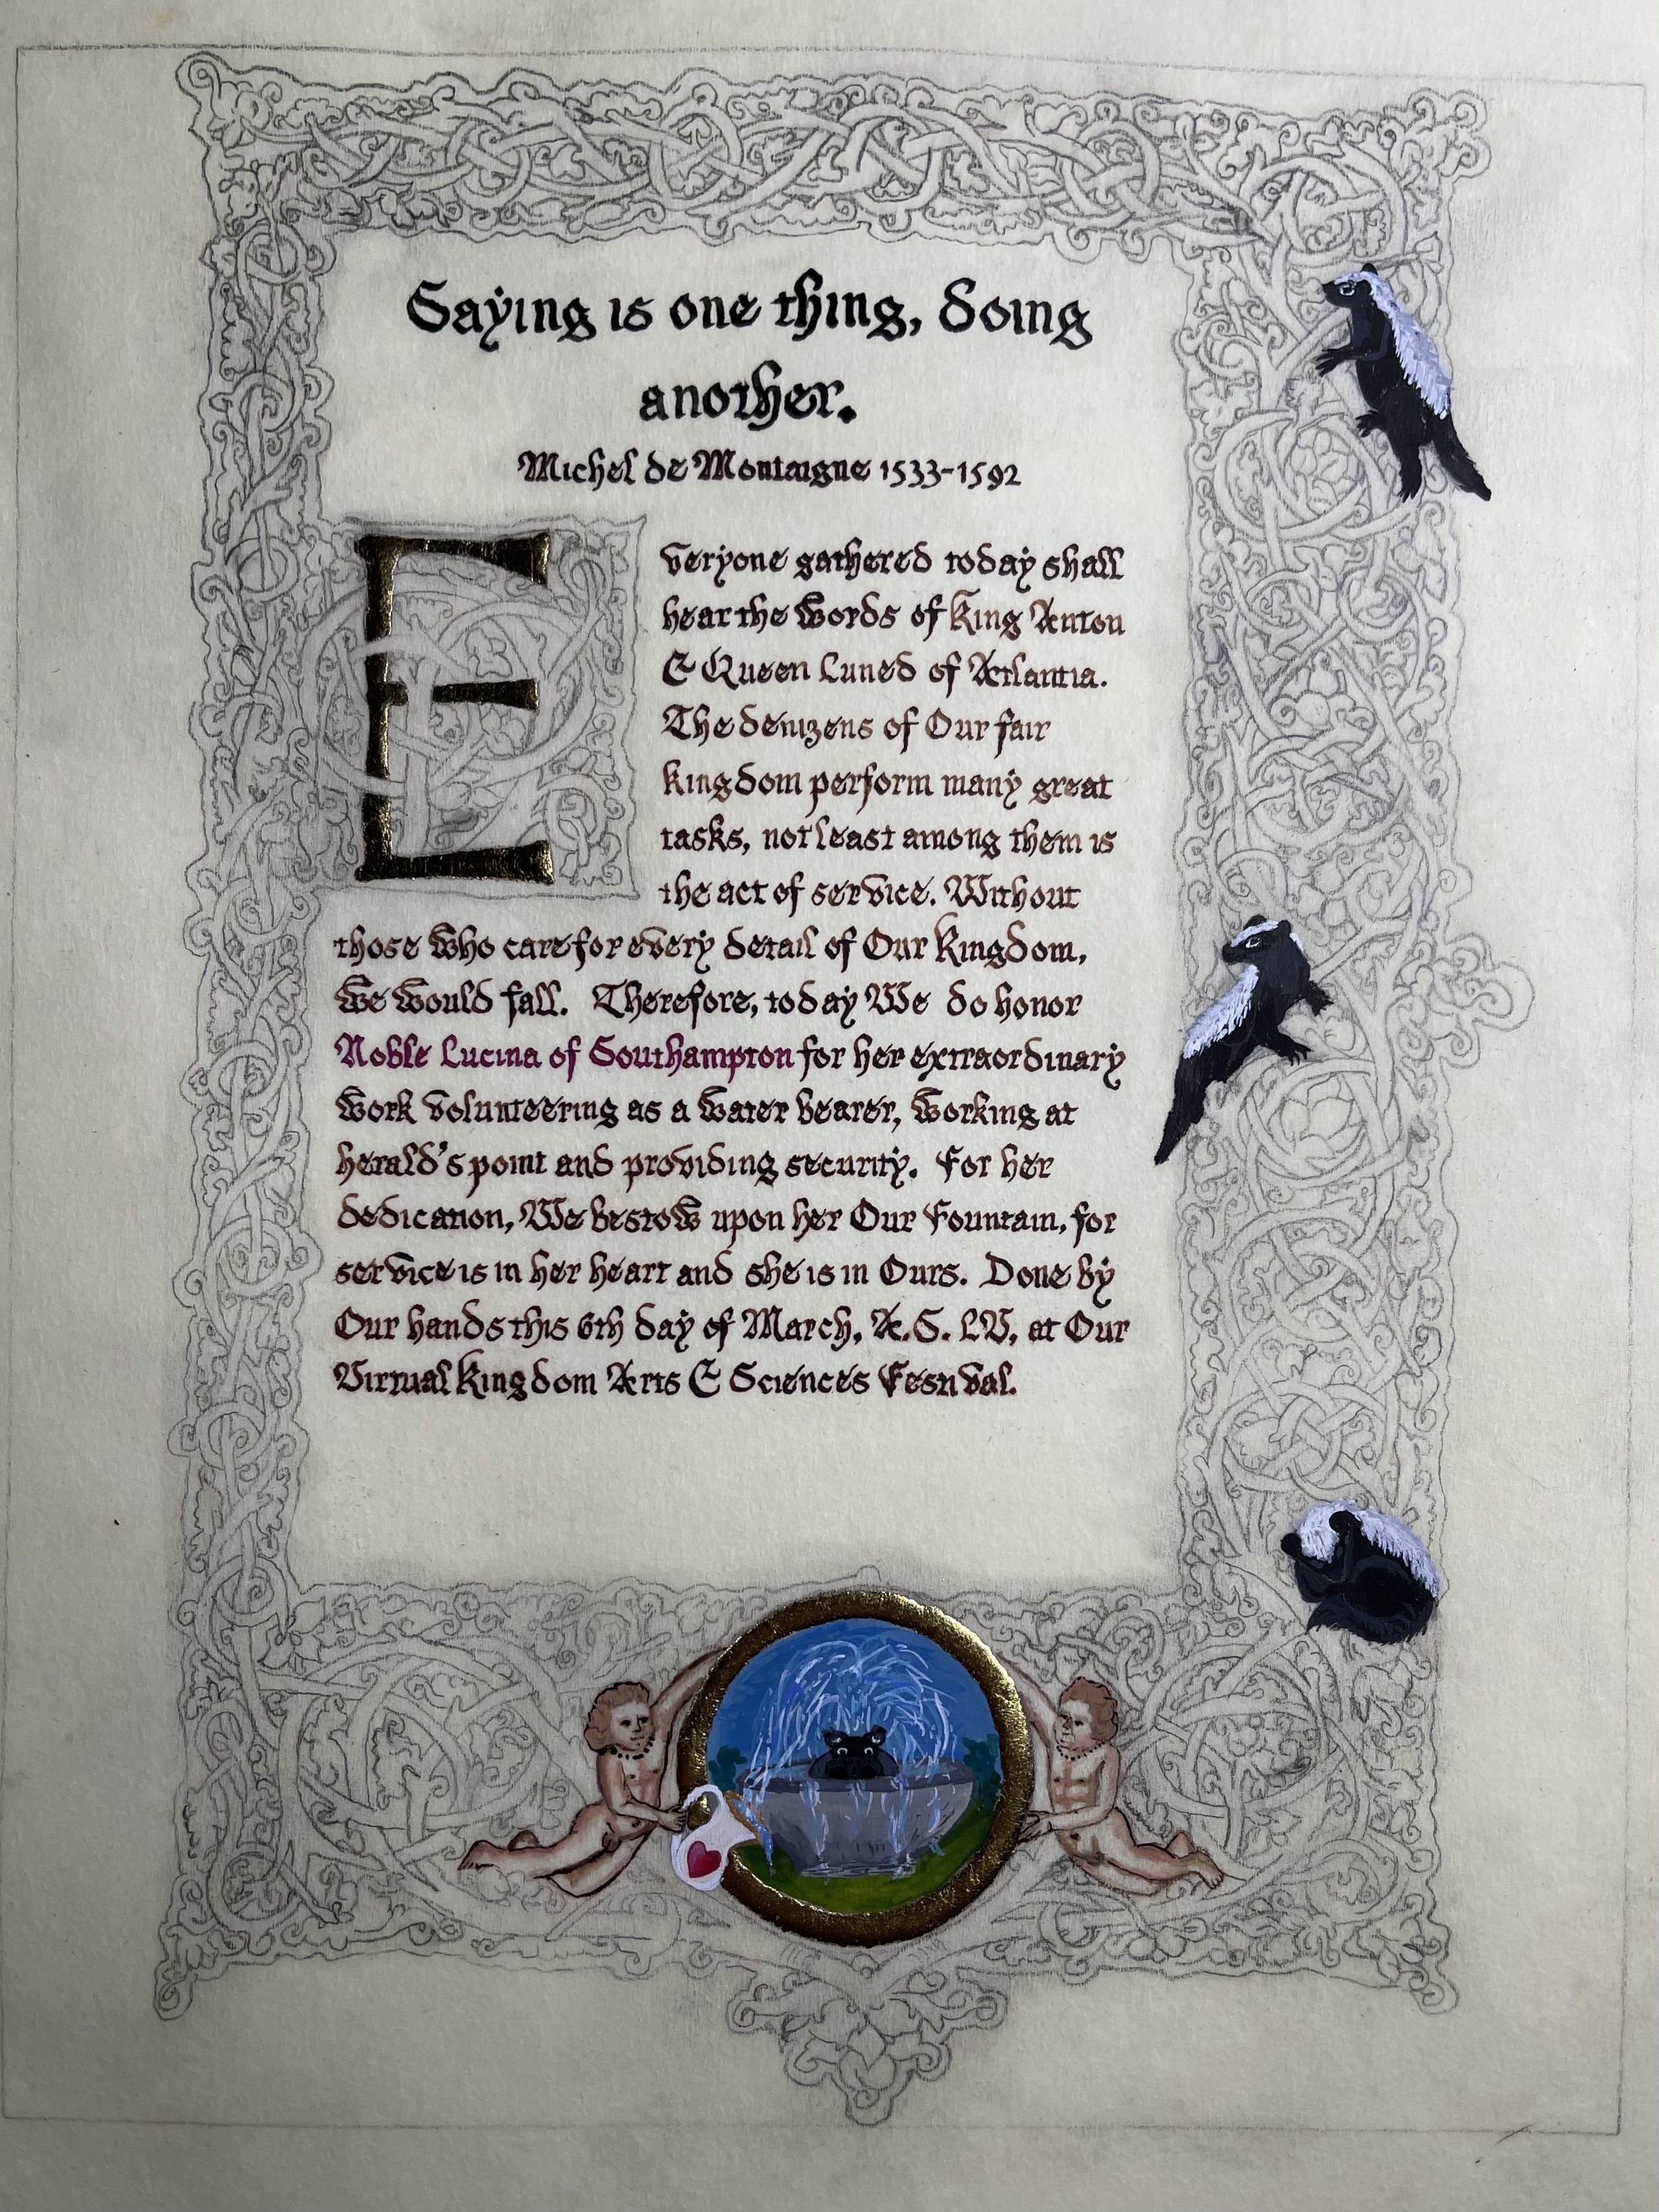 Saying is one thing, doing
another.
Michel de Montaigne 1533-1592
Everyone gathered today shall
hear the words of King Anton
& Queen Luned of Atlantia.
The denizens of Our fair
kingdom perform many great
tasks, not least among them is
the act of service. Without
those who care for every detail of Our Kingdom,
we would fall. Therefore, today We do honor
Noble Lucina of Southampton for her extraordinary
work volunteering as a water bearer, working at
herald's point and providing security. For her
dedication, We bestow upon her Our Fountain, for
service is in her heart and she is in Ours. Done by
Our hands this 6th day of March, A.S. LV, at Our
Virtual Kingdom Arts & Sciences Festival.